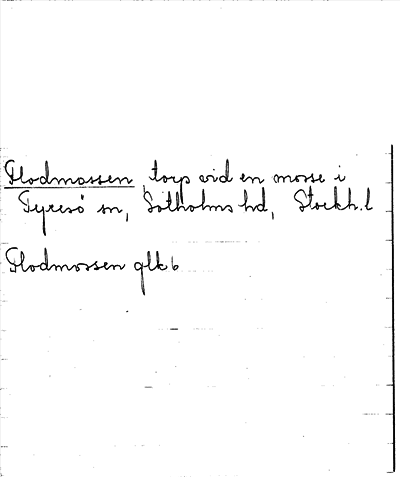 Flodmossen, torp vid en mosse i
Tyresö sn, Sotholms hd, Stockh. l
Flodmossen glk 6